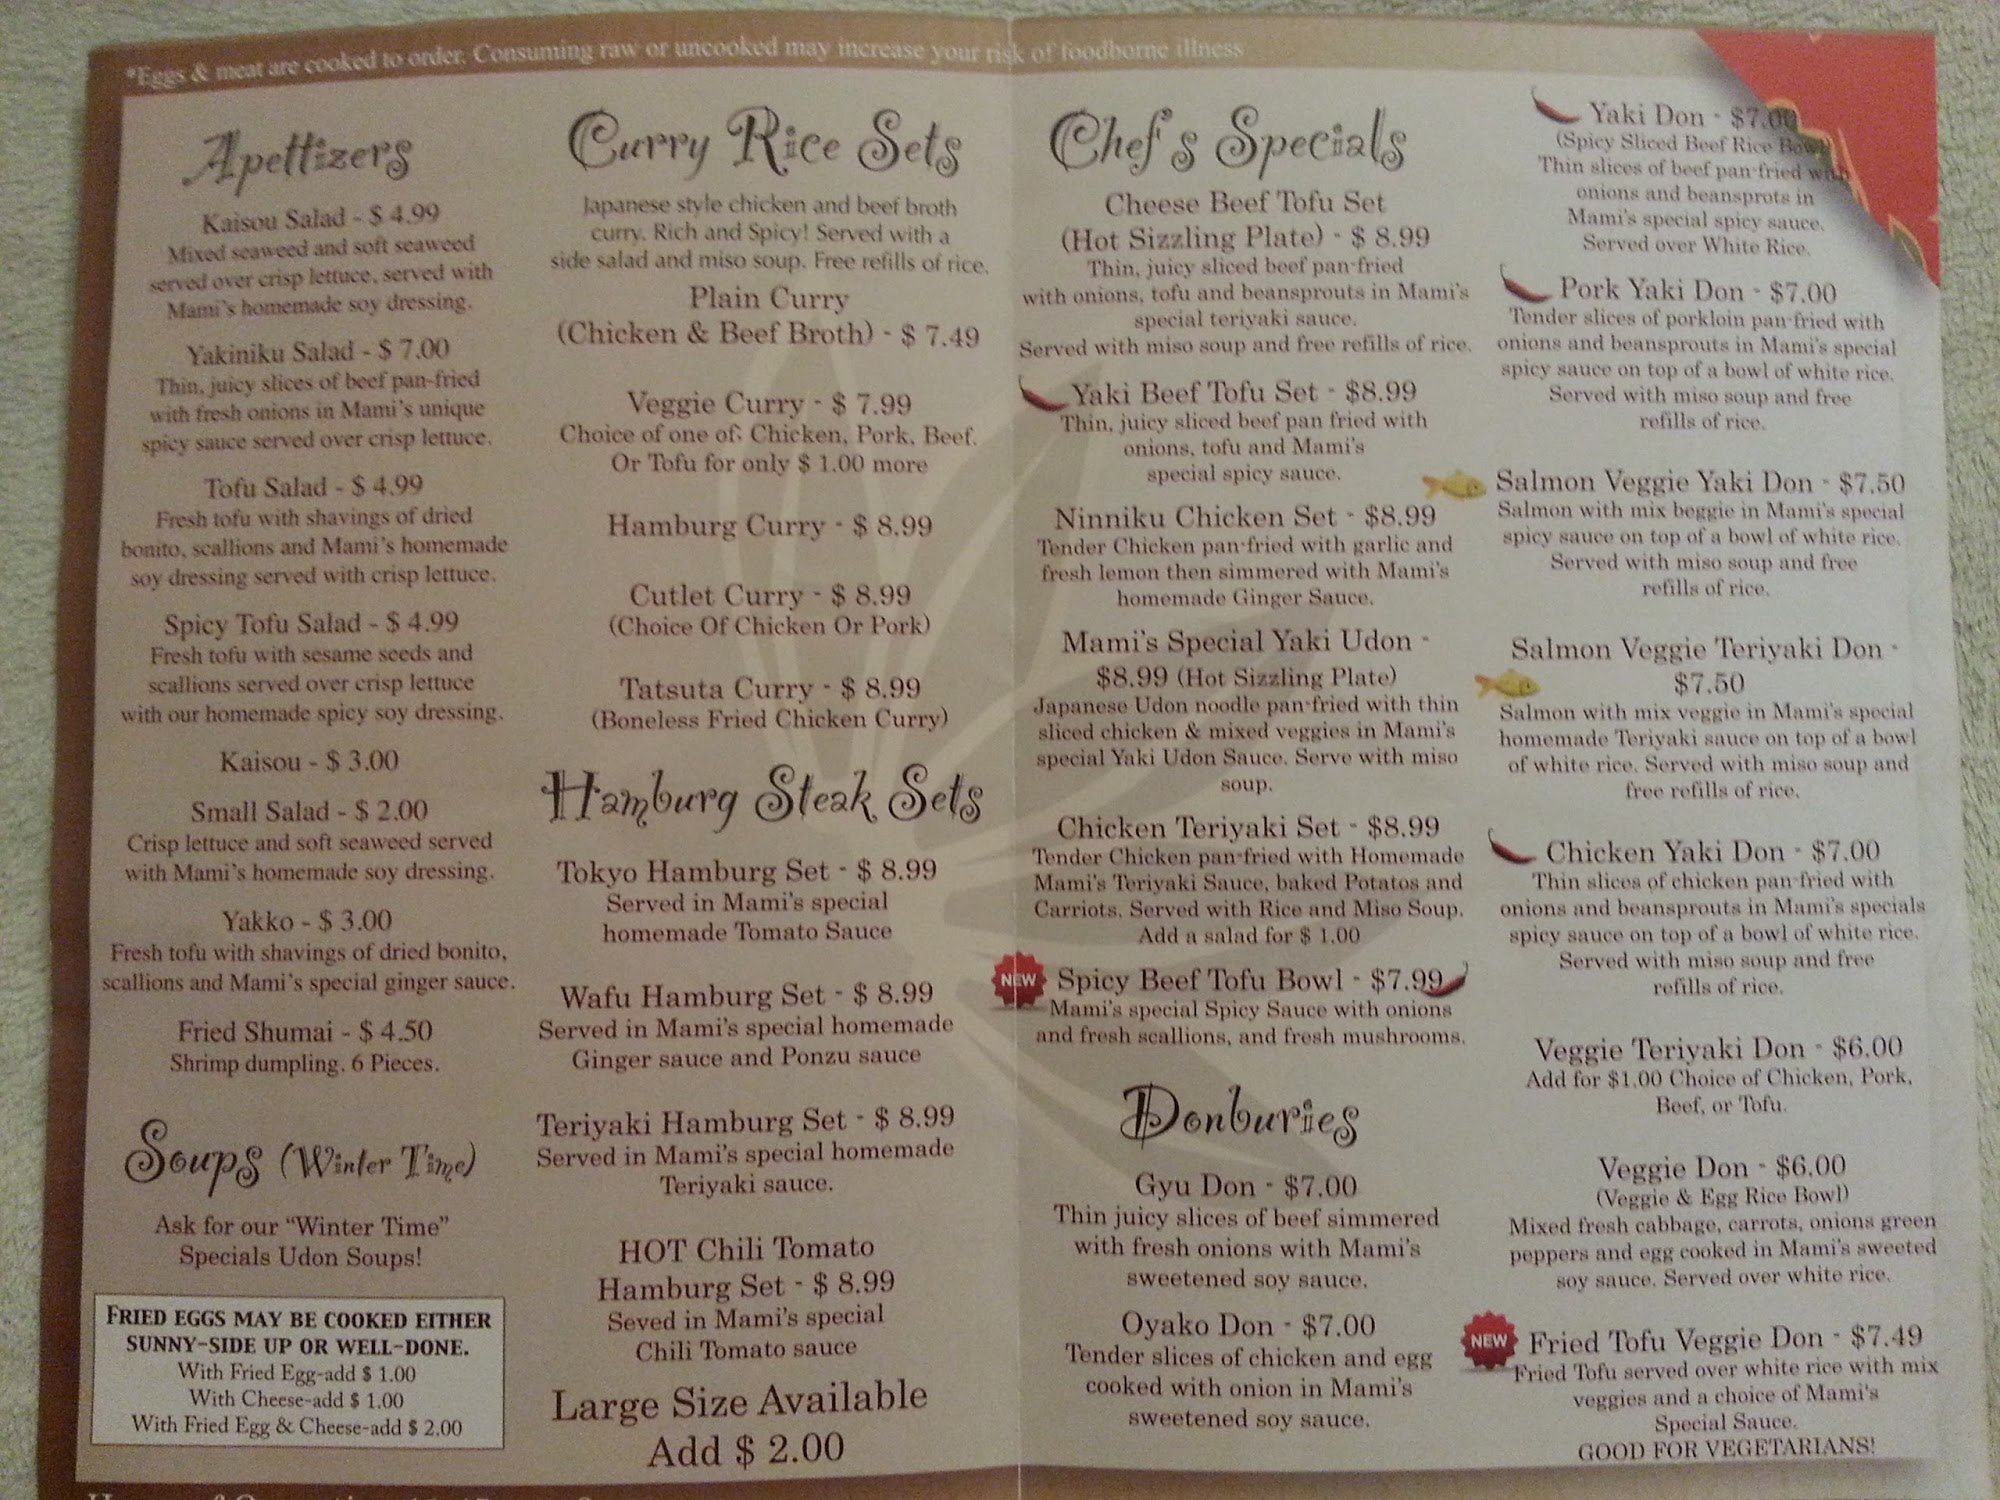 *Eggs & meat are cooked to order. Consuming raw or uncooked may increase your risk of foodborne illness
Apettizers
Kaisou Salad - $ 4.99
Mixed seaweed and soft seaweed
served over crisp lettuce, served with
Mami's homemade soy dressing.
Yakiniku Salad - $ 7.00
Thin, juicy slices of beef pan-fried
with fresh onions in Mami's unique
spicy sauce served over crisp lettuce.
Tofu Salad - $ 4.99
Fresh tofu with shavings of dried
bonito, scallions and Mami's homemade
soy dressing served with crisp lettuce.
Spicy Tofu Salad - $ 4.99
Fresh tofu with sesame seeds and
scallions served over crisp lettuce
with our homemade spicy soy dressing.
Kaisou - $ 3.00
Small Salad - $ 2.00
Crisp lettuce and soft seaweed served
with Mami's homemade soy dressing.
Yakko - $ 3.00
Fresh tofu with shavings of dried bonito,
scallions and Mami's special ginger sauce.
Fried Shumai - $ 4.50
Shrimp dumpling. 6 Pieces.
Soups (Winter Time)
Ask for our “Winter Time”
Specials Udon Soups!
FRIED EGGS MAY BE COOKED EITHER
SUNNY-SIDE UP OR WELL-DONE.
With Fried Egg-add $ 1.00
With Cheese-add $ 1.00
With Fried Egg & Cheese-add $ 2.00
Curry Rice Sets
Japanese style chicken and beef broth
curry. Rich and Spicy! Served with a
side salad and miso soup. Free refills of rice.
Plain Curry
(Chicken & Beef Broth) - $ 7.49
Veggie Curry - $ 7.99
Choice of one of: Chicken, Pork, Beef.
Or Tofu for only $ 1.00 more
Hamburg Curry - $ 8.99
Cutlet Curry - $ 8.99
(Choice Of Chicken Or Pork)
Tatsuta Curry - $ 8.99
(Boneless Fried Chicken Curry)
Hamburg Steak Sets
Tokyo Hamburg Set - $ 8.99
Served in Mami's special
homemade Tomato Sauce
Wafu Hamburg Set - $ 8.99
Served in Mami's special homemade
Ginger sauce and Ponzu sauce
Teriyaki Hamburg Set - $ 8.99
Served in Mami's special homemade
Teriyaki sauce.
HOT Chili Tomato
Hamburg Set - $ 8.99
Seved in Mami's special
Chili Tomato sauce
Large Size Available
Add $ 2.00
Chef's Specials
Cheese Beef Tofu Set
(Hot Sizzling Plate) - $ 8.99
Thin, juicy sliced beef pan-fried
with onions, tofu and beansprouts in Mami's
special teriyaki sauce.
Served with miso soup and free refills of rice.
Yaki Beef Tofu Set - $8.99
Thin, juicy sliced beef pan fried with
onions, tofu and Mami's
special spicy sauce.
Ninniku Chicken Set - $8.99
Tender Chicken pan-fried with garlic and
fresh lemon then simmered with Mami's
homemade Ginger Sauce.
Mami's Special Yaki Udon -
$8.99 (Hot Sizzling Plate)
Japanese Udon noodle pan-fried with thin
sliced chicken & mixed veggies in Mami's
special Yaki Udon Sauce. Serve with miso
soup.
Chicken Teriyaki Set - $8.99
Tender Chicken pan-fried with Homemade
Mami's Teriyaki Sauce, baked Potatos and
Carriots. Served with Rice and Miso Soup.
Add a salad for $ 1.00
NEW Spicy Beef Tofu Bowl - $7.99
Mami's special Spicy Sauce with onions
and fresh scallions, and fresh mushrooms.
Donburies
Gyu Don - $7.00
Thin juicy slices of beef simmered
with fresh onions with Mami's
sweetened soy sauce.
Oyako Don - $7.00
Tender slices of chicken and egg
cooked with onion in Mami's
sweetened soy sauce.
Yaki Don - $7.00
(Spicy Sliced Beef Rice Bowl)
Thin slices of beef pan-fried with
onions and beansprots in
Mami's special spicy sauce.
Served over White Rice.
Pork Yaki Don - $7.00
Tender slices of porkloin pan-fried with
onions and beansprouts in Mami's special
spicy sauce on top of a bowl of white rice.
Served with miso soup and free
refills of rice.
Salmon Veggie Yaki Don - $7.50
Salmon with mix beggie in Mami's special
spicy sauce on top of a bowl of white rice.
Served with miso soup and free
refills of rice.
Salmon Veggie Teriyaki Don -
$7.50
Salmon with mix veggie in Mami's special
homemade Teriyaki sauce on top of a bowl
of white rice. Served with miso soup and
free refills of rice.
Chicken Yaki Don - $7.00
Thin slices of chicken pan-fried with
onions and beansprouts in Mami's specials
spicy sauce on top of a bowl of white rice.
Served with miso soup and free
refills of rice.
Veggie Teriyaki Don - $6.00
Add for $1.00 Choice of Chicken, Pork,
Beef, or Tofu.
Veggie Don - $6.00
(Veggie & Egg Rice Bowl)
Mixed fresh cabbage, carrots, onions green
peppers and egg cooked in Mami's sweeted
soy sauce. Served over white rice.
NEW Fried Tofu Veggie Don - $7.49
Fried Tofu served over white rice with mix
veggies and a choice of Mami's
Special Sauce.
GOOD FOR VEGETARIANS!